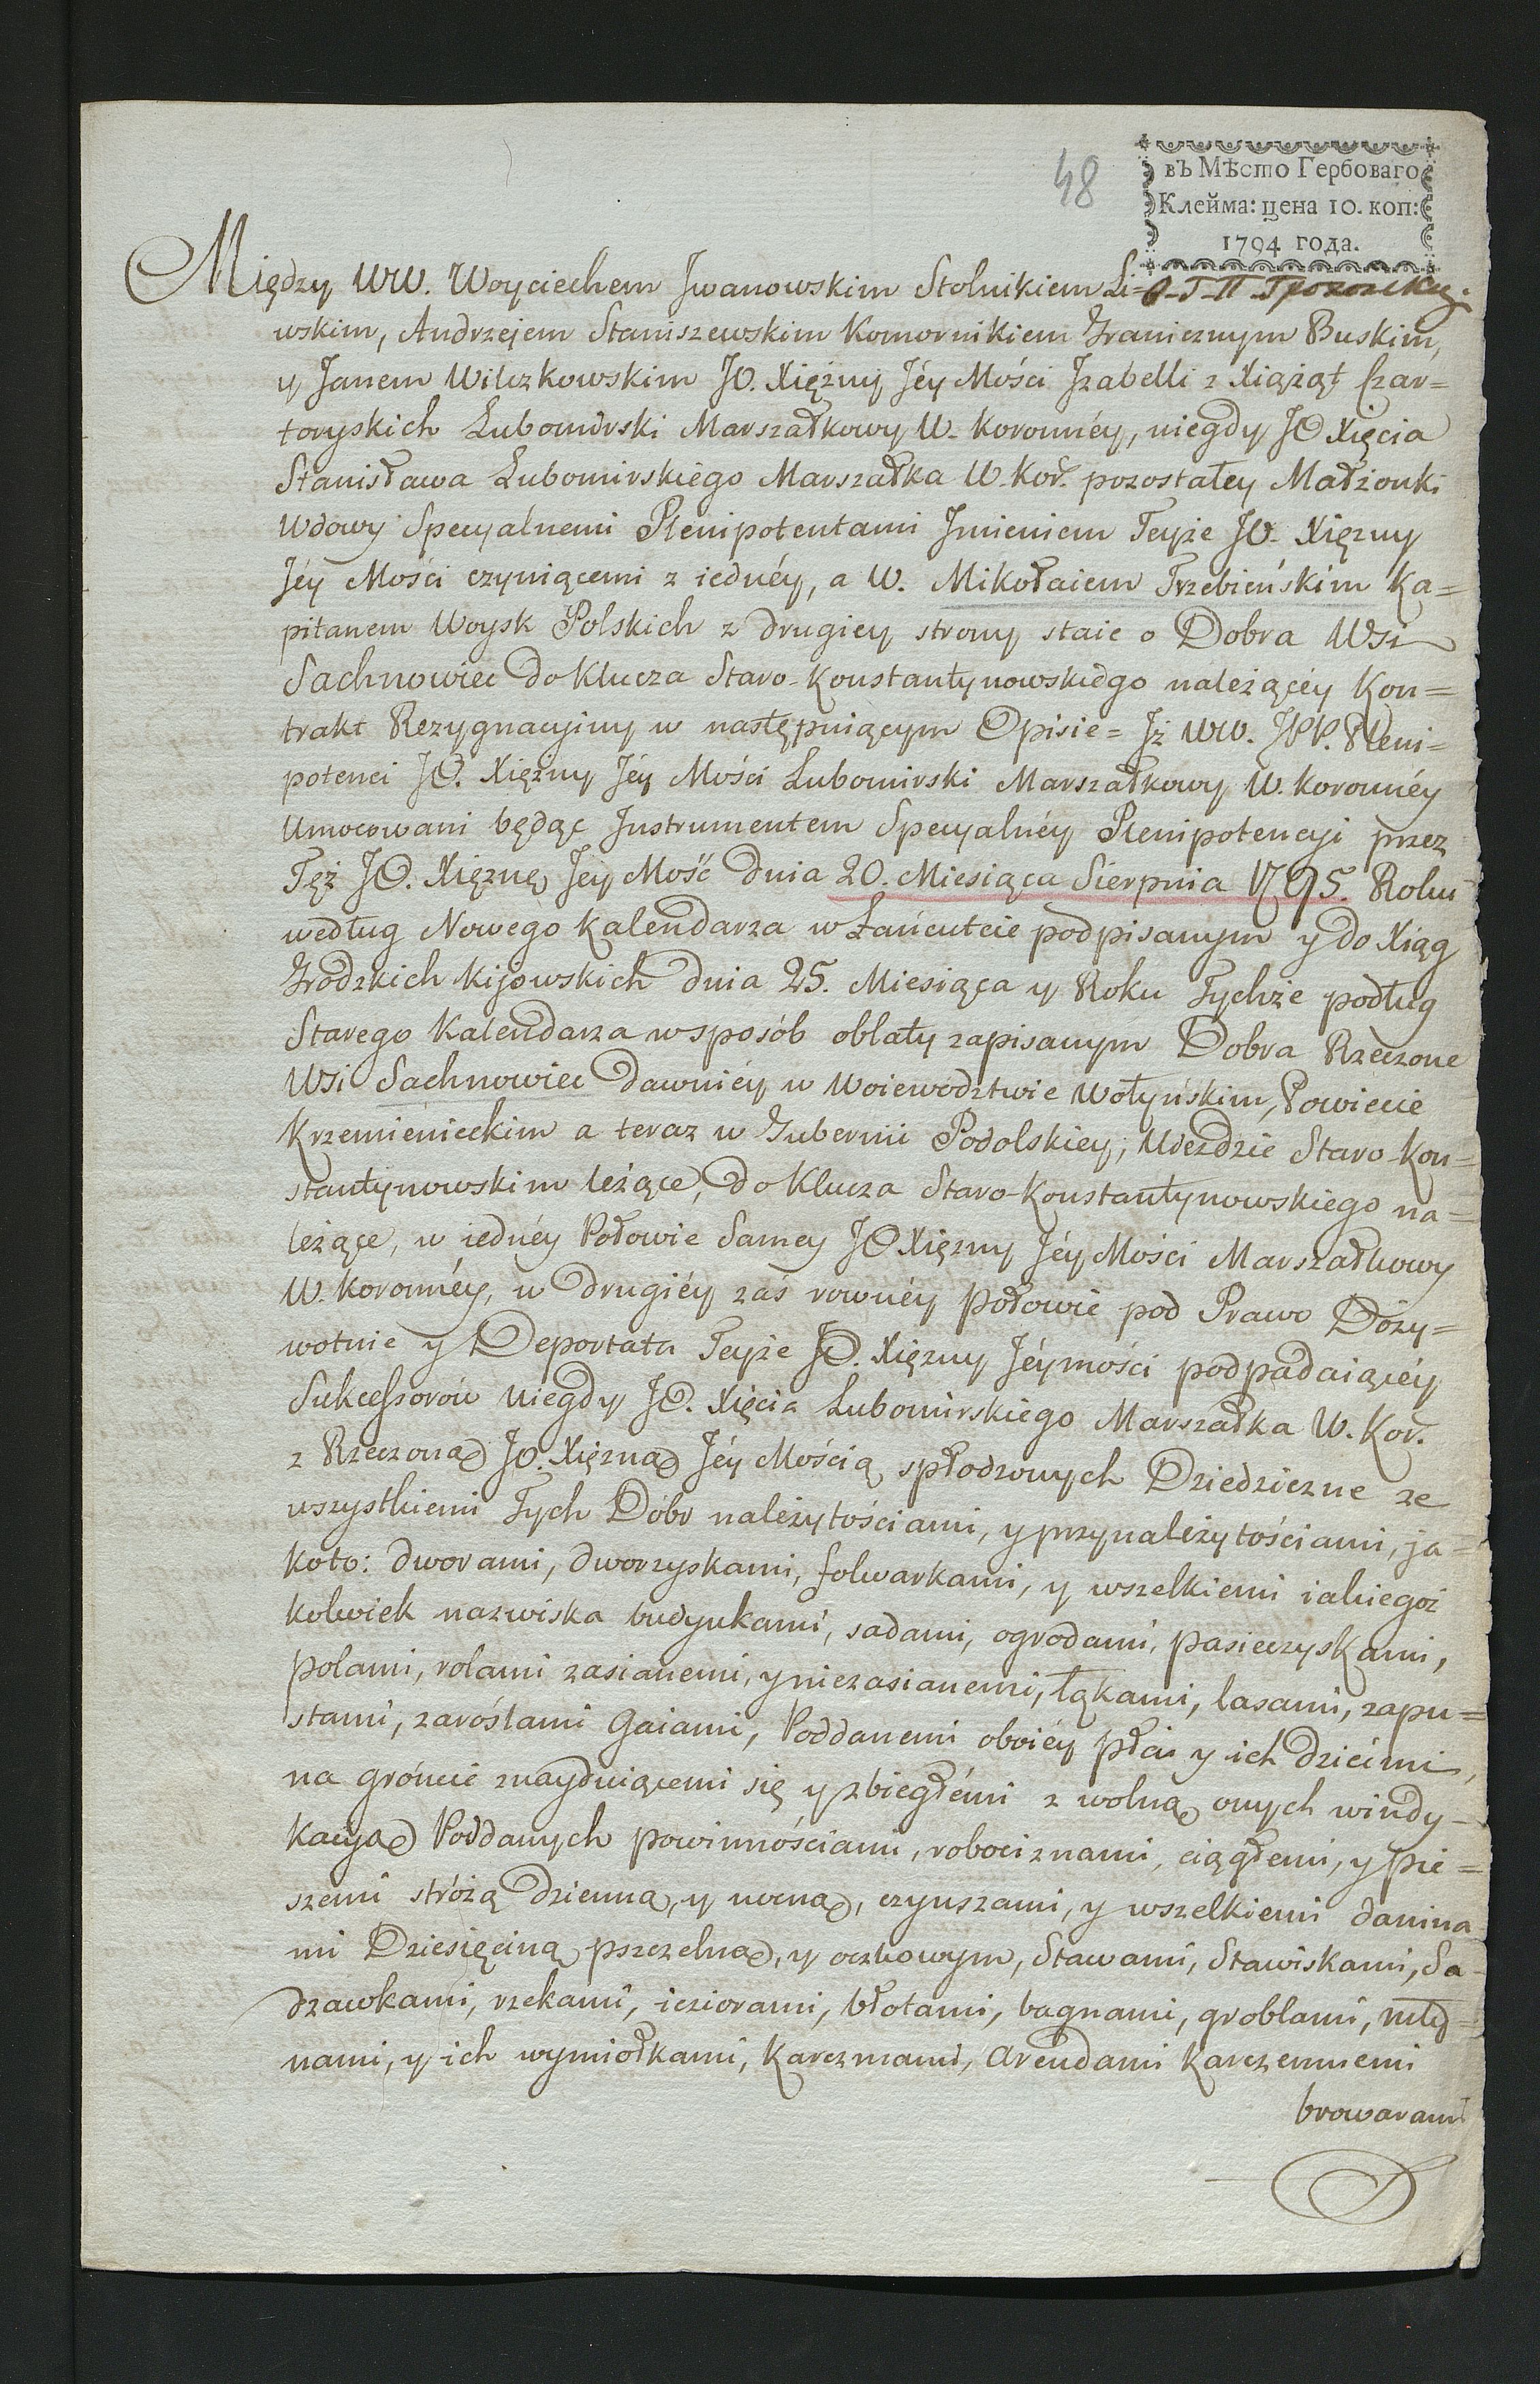 48
въ Мѣсто Гербоваго
Клейма: цена 10. коп:
1794 года.
Między WW. Woyciechem Jwanowskim Stolnikiem Li=
wskim, Andrzejem Staniszewskim Komornikiem Granicznym Buskim,
y Janem Wilczkowskim JO. Xiężny Jéy Mości Jzabelli z Xiążąt Czar=
toryskich Lubomirski Marszałkowy W. Koronnéy, niegdy JO Xięcia
Stanisława Lubomirskiego Marszałka W. Koř. pozostałey Małżonki
Wdowy Specyalnemi Plenipotentami Jmieniem Teyże JO. Xiężny
Jéy Mości czyniącemi z iednéy, a W. Mikołaiem Trzebieńskim Ka=
pitanem Woysk Polskich z drugiey strony staie o Dobra Wsi
Sachnowiec do Klucza Staro-Konstantynowskiego należącéy Kon=
trakt Rezygnacyiny w następuiącym Opisie = Jż WW. JPP. Pleni=
potenci JO. Xiężny Jéy Mości Lubomirski Marszałkowy W. Koronnéy
Umocowani będąc Jnstrumentem Specyalnéy Plenipotencyi przez
Tęż JO. Xiężnę Jey Mość dnia 20. Miesiąca Sierpnia 1795. Roku
według Nowego Kalendarza w Łańcutcie podpisanym y do Xiąg
Grodzkich Kijowskich dnia 25. Miesiąca y Roku Tychże podług
Starego Kalendarza w sposób oblaty zapisanym Dobra Rzeczone
Wsi Sachnowiec dawniéy w Woiewodztwie Wołyńskim, Powiecie
Krzemienieckim a teraz w Gubernii Podolskiey, Ujezdzie Staro-Kon=
stantynowskim leżące, do Klucza Staro-Konstantynowskiego na=
leżące, w iednéy Połowie Samey JO Xiężny Jéy Mości Marszałkowy
W. Koronnéy, w drugiéy zaś rownéy połowie pod Prawo Doży=
wotnie y Deportata Teyże JO. Xiężny Jéymości podpadaiącéy
Sukcessorów niegdy JO. Xięcia Lubomirskiego Marszałka W. Koř.
z Rzeczoną JO. Xiężną Jéy Mością spłodzonych Dziedziczne ze
wszystkiemi Tych Dóbr należytościami, y przynależytościami, ja=
koto: dworami, dworzyskami, folwarkami, y wszelkiemi iakiegoż
kolwiek nazwiska budynkami, sadami, ogrodami, pasieczyskami,
polami, rolami zasianemi, y niezasianemi, łąkami, lasami, zapu=
stami, zaroślami Gaiami, Poddanemi oboiéy płci y ich dziećmi,
na gróncie znayduiącemi się y zbiegłémi z wolną onych windy-
kacyą Poddanych powinnościami, robociznami, ciągłemi, y pie=
szemi stróżą dzienną, y nocną, czynszami, y wszelkiemi danina
mi Dziesięciną pszczelną, y oczkowym, Stawami, Stawiskami, Sa-
dzawkami, rzekami, ieziorami, błotami, bagnami, groblami, mły=
nami, y ich wymiołkami, Karczmami, Arendami Karczemnemi
browarami